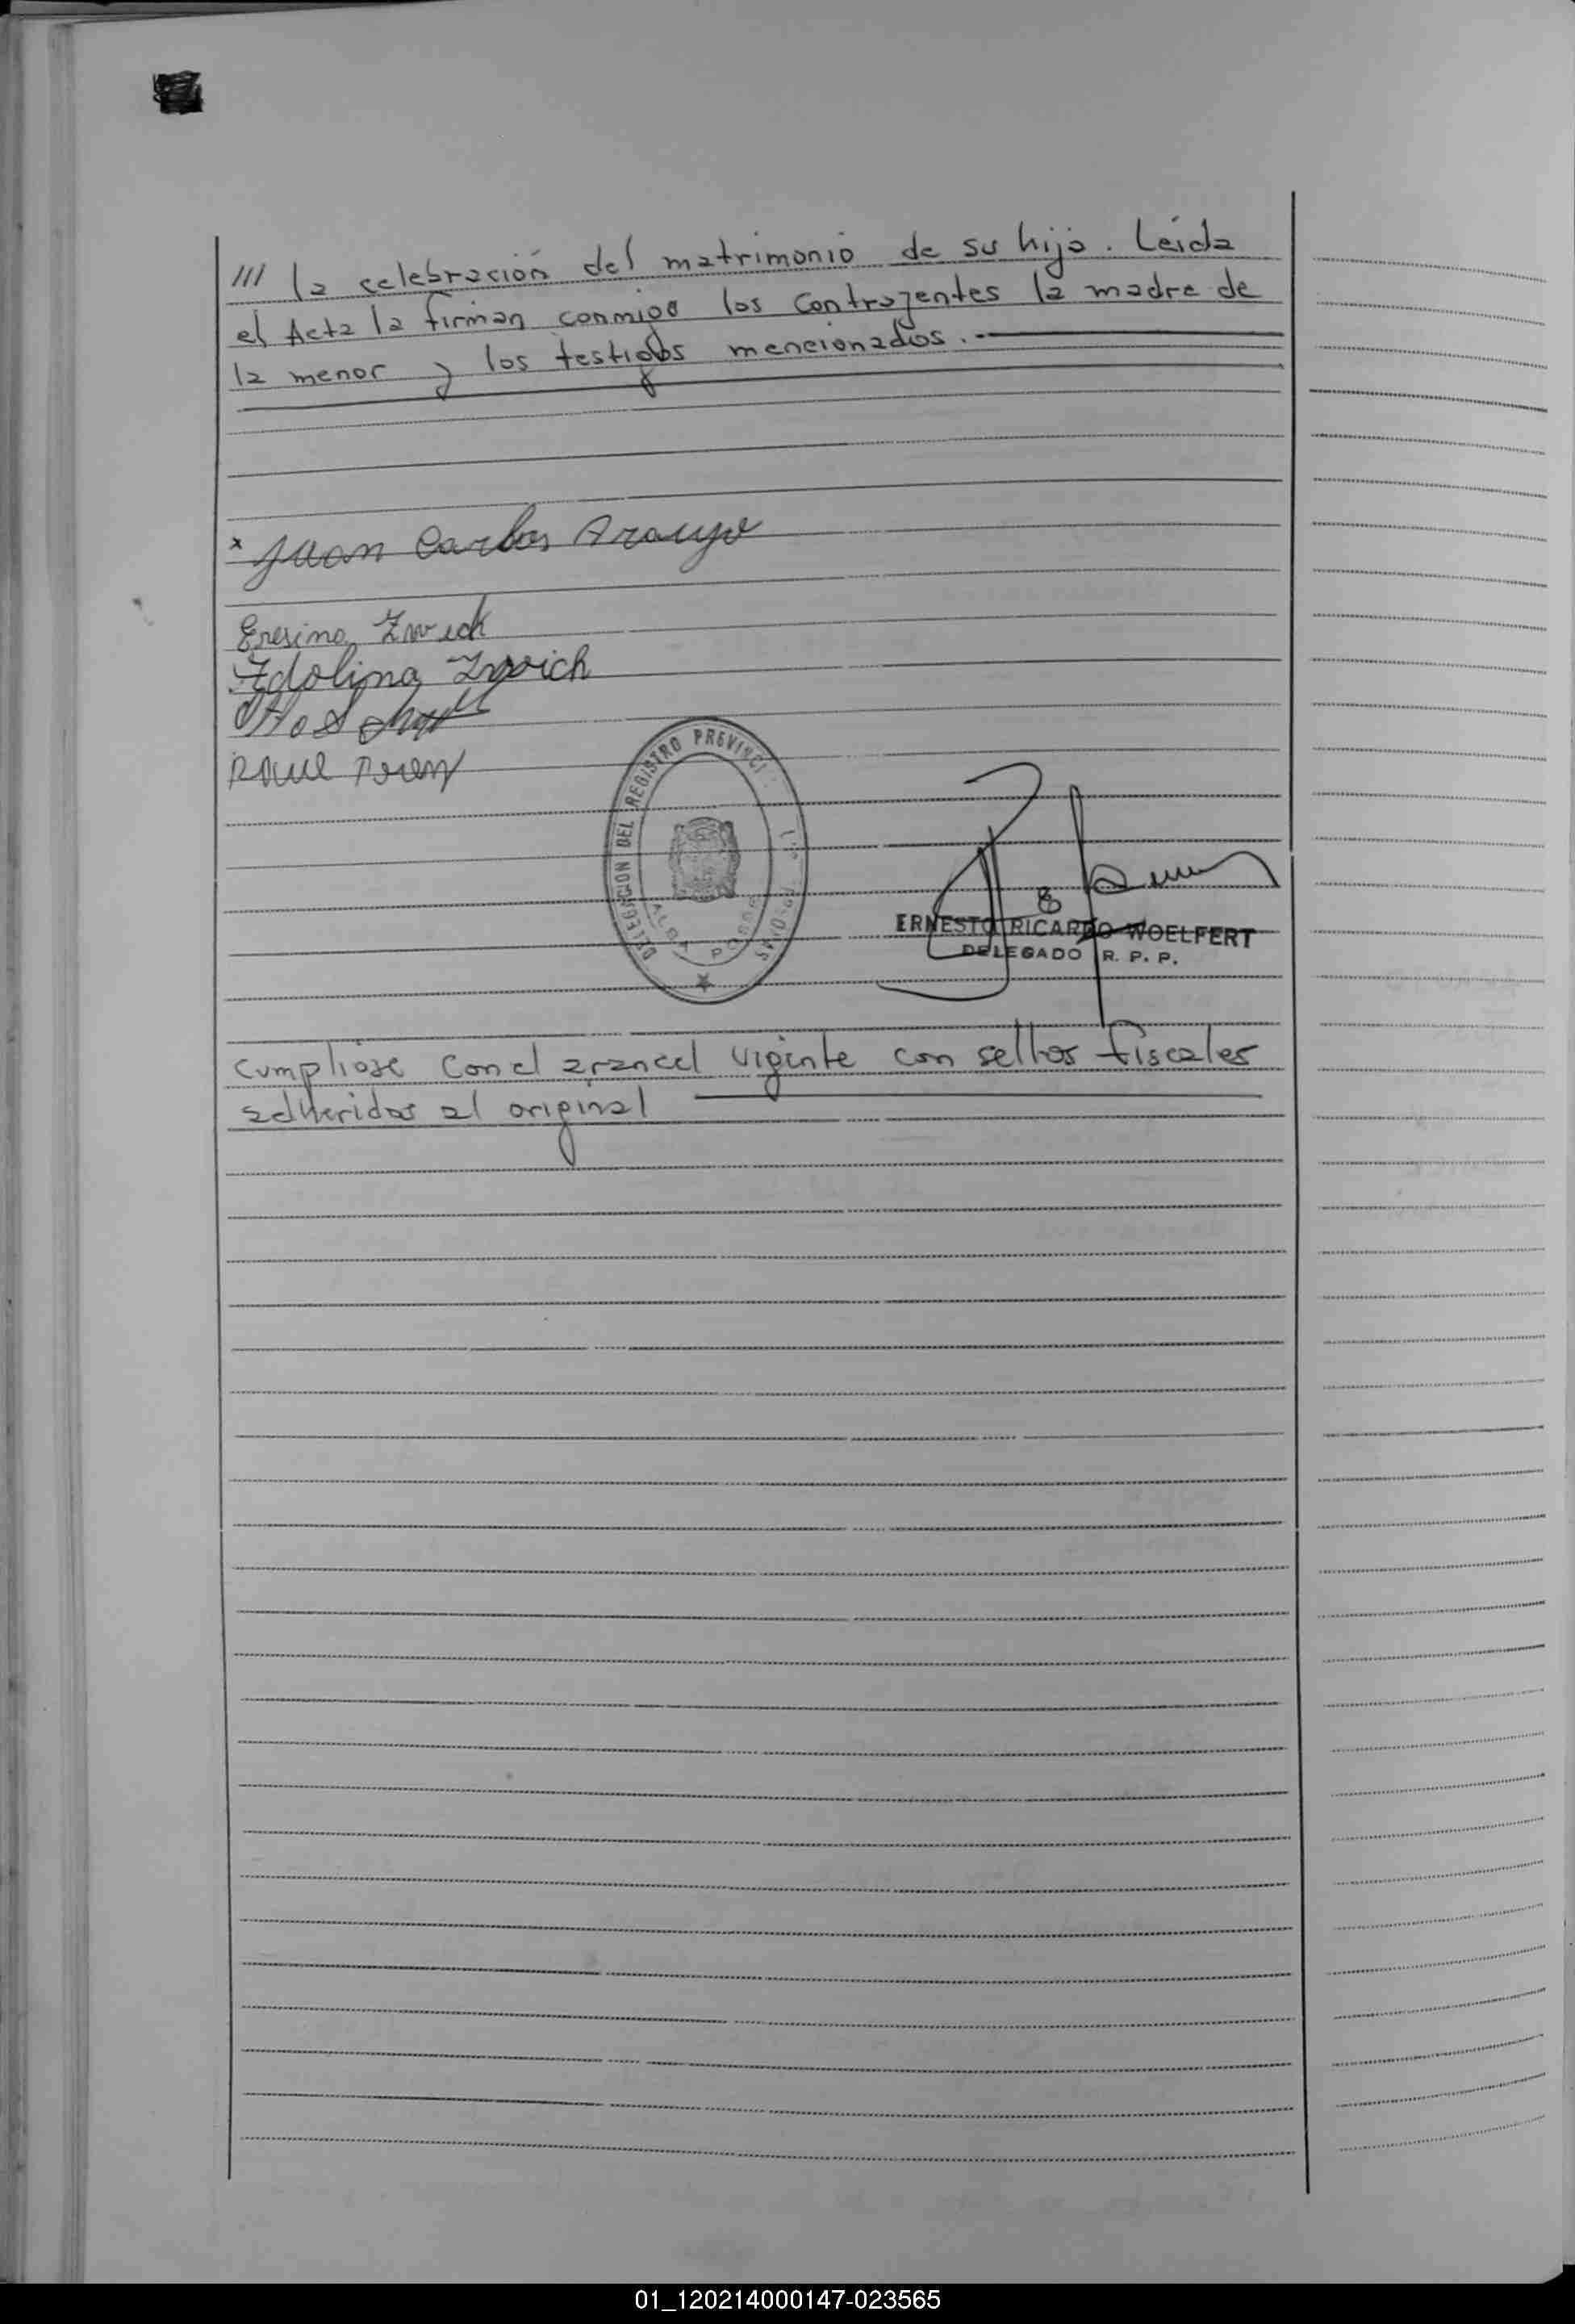 /// la celebración del matrimonio de su hija. Leída
el Acta la firman conmigo los contrayentes la madre de
la menor y los testigos mencionados.
x Juan Carlos Araujo
Eresina Zwick
Idolina Zwich
Raul
DELEGACION DEL REGISTRO PROVINCI
ALBA POSSE
ERNESTO RICARDO WOELFERT
DELEGADO R. P. P.
Cumpliose con el arancel vigente con sellos fiscales
adheridos al original
01_120214000147-023565